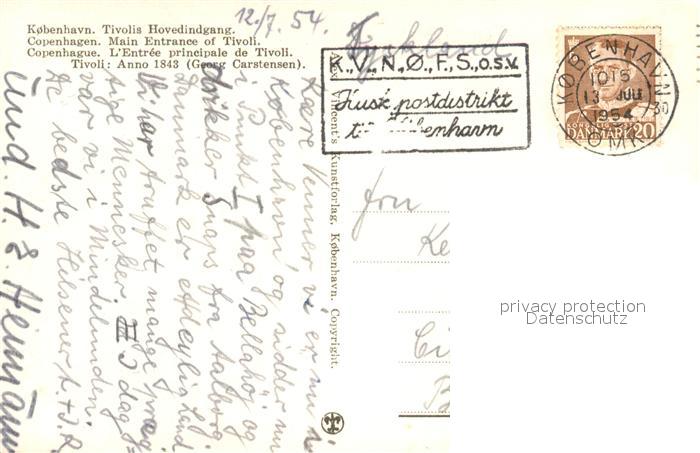 12./7. 54.
København. Tivolis Hovedindgang.
Copenhagen. Main Entrance of Tivoli.
Copenhague. L'Entrée principale de Tivoli.
Tivoli: Anno 1843 (Georg Carstensen).
Tyskland
K.,V.,N.,Ø.,F.,S.,o.s.v.
Husk postdistrikt
København
KØBENHAVN
1015
13 JULI
1954
OMK
DANMARK 20
Kære Venner vi er nu i
København og sidder nu
i Punkt I paa Bellahøj og
drikker Snaps fra Aalborg.
Danmark er et dejlig Land
Vi har truffet mange præg
tige Mennesker. III I dag
var vi i Mindelunden.
De bedste Hilsener
Und. H.
Kunstforlag, København. Copyright.
Fru
privacy protection
Datenschutz